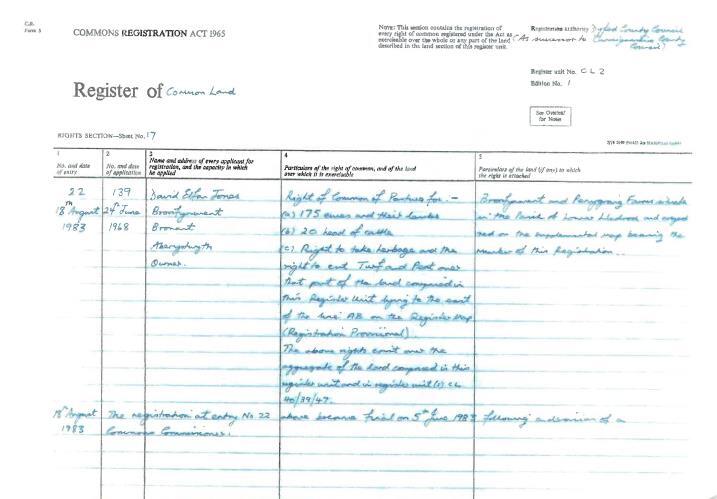 C.R.
Form 5
COMMONS REGISTRATION ACT 1965
Note: This section contains the registration of
every right of common registered under the Act as
exercisable over the whole or any part of the land
described in the land section of this register unit.
Registration authority Dyfed County Council
(As successor to Cardiganshire County
Council)
Register unit No. CL 2
Edition No. 1
See Overleaf
for Notes
Register of Common Land
RIGHTS SECTION—Sheet No. 17
1
No. and date
of entry
2
No. and date
of application
3
Name and address of every applicant for
registration, and the capacity in which
he applied
4
Particulars of the right of common, and of the land
over which it is exercisable
5
Particulars of the land (if any) to which
the right is attached
22
18th August
1983
139
24th June
1968
David Elfan Jones
Bronant
Aberystwyth
Owner.
Right of Common of Pasture for :-
(a) 175 ewes and their lambs
(b) 20 head of cattle
(c) Right to take herbage and the
right to cut Turf and Peat over
that part of the land comprised in
this Register Unit lying to the east
of the line AB on the Register Map
(Registration Provisional).
The above rights exist over the
aggregate of the land comprised in this
register unit and in register unit(s) CL
40/39/47.
and Farms situate
in the Parish of Lower and edged
red on the supplemental map bearing the
number of this Registration.
18th August
1983
The registration at entry No 22 above became final on 5th June 1983 following a decision of a
Commons Commissioner.